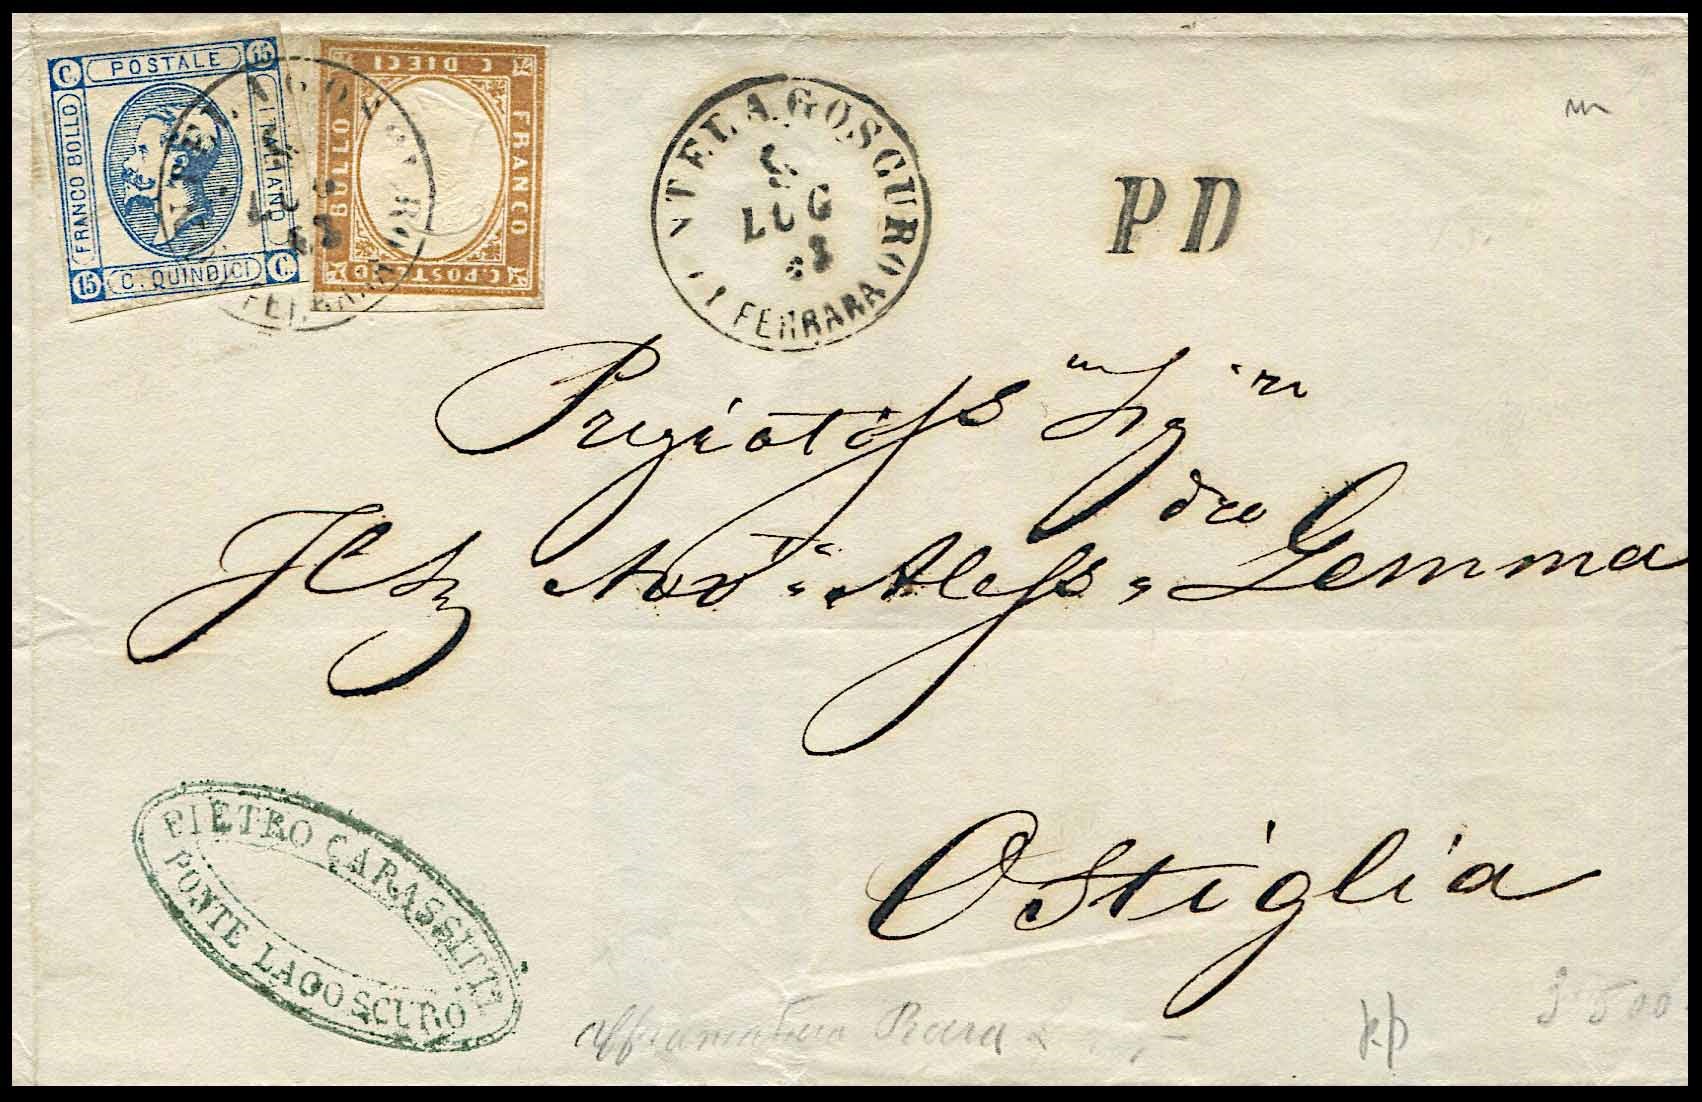 C. POSTALE 15
FRANCO BOLLO
ITALIANO
15 C. QUINDICI C.
C DIECI
FRANCO
BOLLO
C. POSTE
NTELAGOSCURO
LUG
63
FERRARA
P D
Pregiatiss mi Sig ri
Aless dro Gemma
Ostiglia
PIETRO CARASSITI
PONTE LAGOSCURO
Affrancatura Rara
500